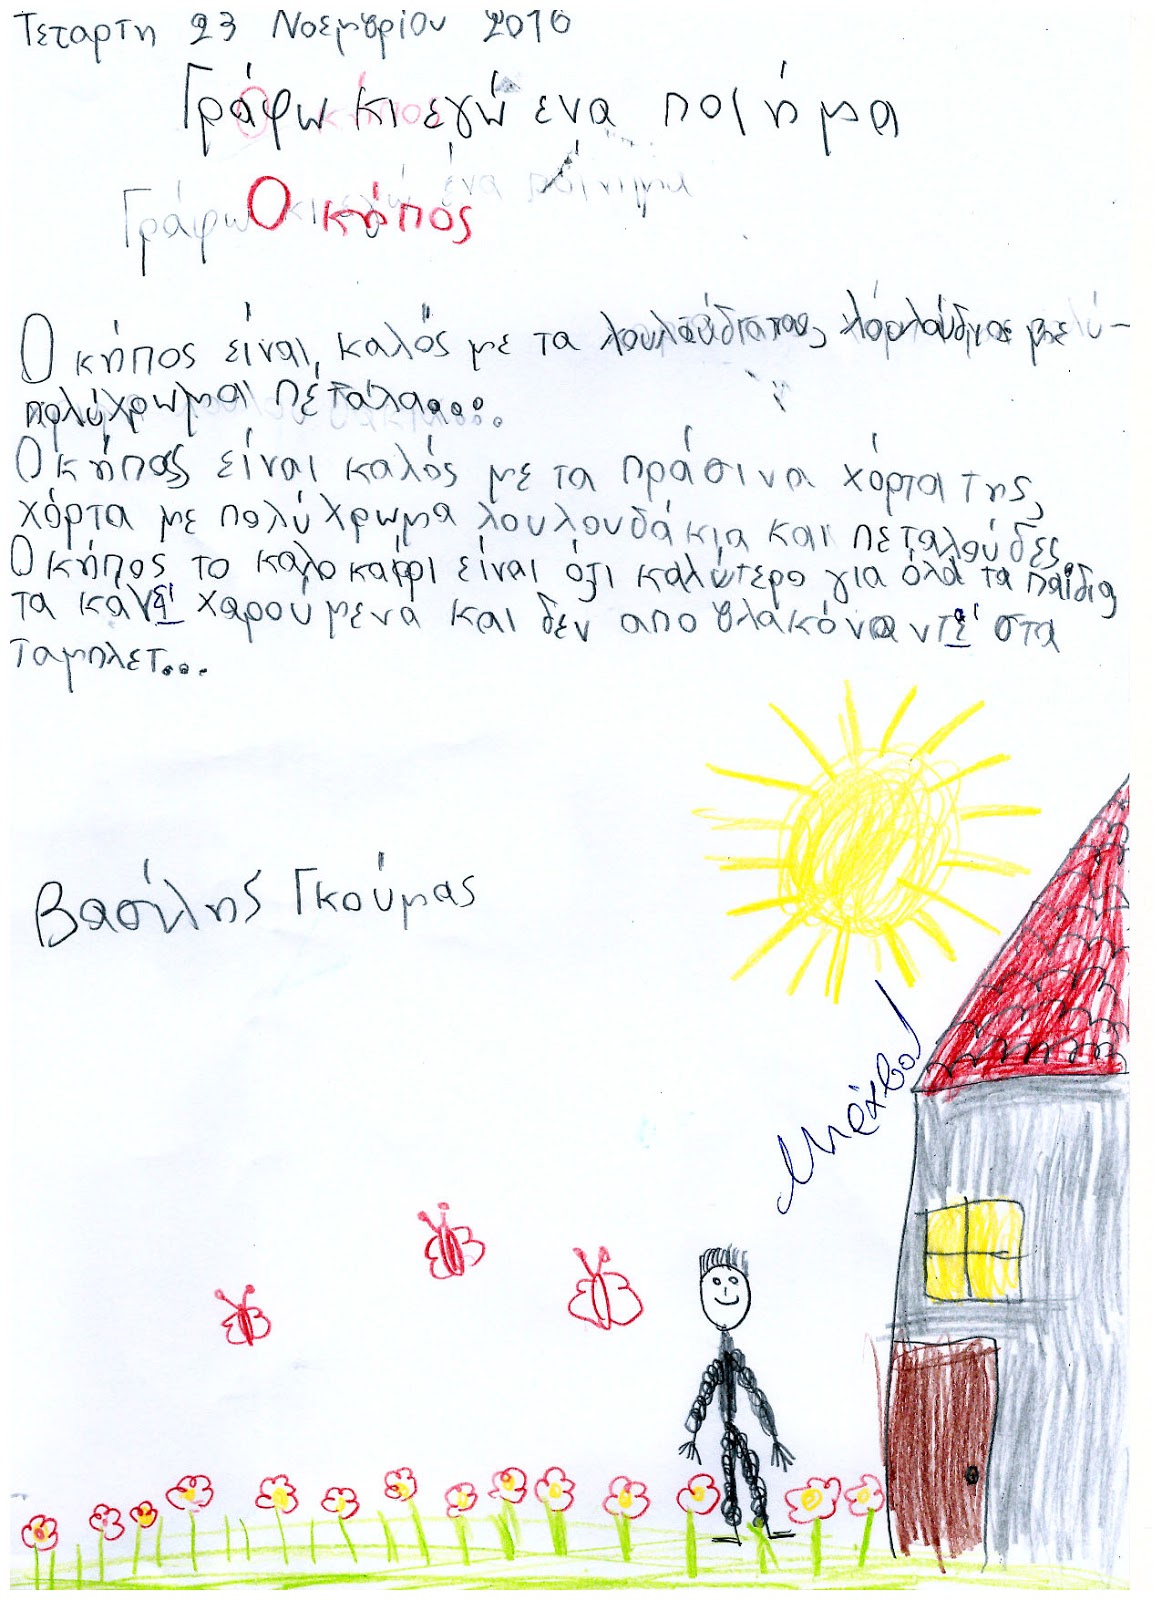 Τεταρτη 23 Νοεμβρίου 2016
Γράφω κι εγώ ενα ποίημα
Ο κήπος
Ο κήπος είναι καλός με τα λουλούδια του, λουλούδια με
πολύχρωμα πέταλα....
Ο κήπος είναι καλός με τα πράσινα χόρτα της,
χόρτα με πολύχρωμα λουλουδάκια και πεταλούδες.
Ο κήπος το καλοκαίρι είναι ότι καλύτερο για όλα τα παίδια
τα κανεί χαρουμενα και δεν αποβλακόνονται στα
ταμπλετ...
Βασίλης Γκούμας
Μπράβο!